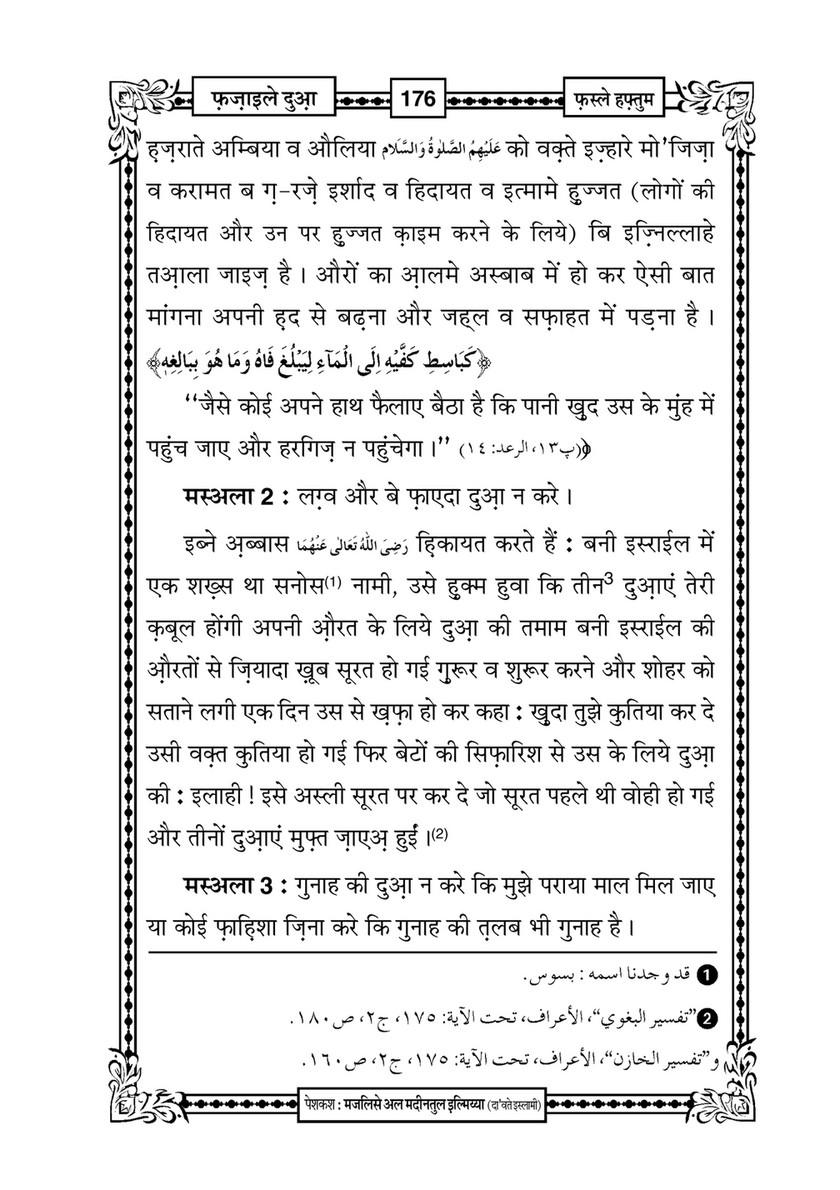 फ़ज़ाइले दुआ़
176
फ़स्ले हफ़्तुम
ह़ज़राते अम्बिया व औलिया عَلَيْهِمُ الصَّلٰوةُ وَالسَّلَام को वक़्ते इज़्हारे मो'जिज़ा
व करामत ब ग़-रज़े इर्शाद व हिदायत व इत्मामे हुज्जत (लोगों की
हिदायत और उन पर हुज्जत क़ाइम करने के लिये) बि इज़्निल्लाहे
तआ़ला जाइज़ है। औरों का आ़लमे अस्बाब में हो कर ऐसी बात
मांगना अपनी ह़द से बढ़ना और जह्ल व सफ़ाहत में पड़ना है।
﴿كَبَاسِطِ كَفَّيْهِ اِلَى الْمَآءِ لِيَبْلُغَ فَاهُ وَمَا هُوَ بِبَالِغِهٖ﴾
''जैसे कोई अपने हाथ फैलाए बैठा है कि पानी ख़ुद उस के मुंह में
पहुंच जाए और हरगिज़ न पहुंचेगा।'' (پ١٣، الرعد: ١٤)
मस्अला 2 : लग़्व और बे फ़ाएदा दुआ़ न करे।
इब्ने अ़ब्बास رَضِىَ اللّٰهُ تَعَالٰى عَنْهُمَا ह़िकायत करते हैं : बनी इस्राईल में
एक शख़्स था सनोस(1) नामी, उसे हुक्म हुवा कि तीन3 दुआ़एं तेरी
क़बूल होंगी अपनी औ़रत के लिये दुआ़ की तमाम बनी इस्राईल की
औ़रतों से ज़ियादा ख़ूब सूरत हो गई ग़ुरूर व शुरूर करने और शोहर को
सताने लगी एक दिन उस से ख़फ़ा हो कर कहा : ख़ुदा तुझे कुतिया कर दे
उसी वक़्त कुतिया हो गई फिर बेटों की सिफ़ारिश से उस के लिये दुआ़
की : इलाही ! इसे अस्ली सूरत पर कर दे जो सूरत पहले थी वोही हो गई
और तीनों दुआ़एं मुफ़्त ज़ाएअ़ हुईं।(2)
मस्अला 3 : गुनाह की दुआ़ न करे कि मुझे पराया माल मिल जाए
या कोई फ़ाह़िशा ज़िना करे कि गुनाह की त़लब भी गुनाह है।
1 قد وجدنا اسمه : بسوس.
2 "تفسير البغوي"، الأعراف، تحت الآية: ١٧٥، ج٢، ص١٨٠.
و"تفسير الخازن"، الأعراف، تحت الآية: ١٧٥، ج٢، ص١٦٠.
पेशकश : मजलिसे अल मदीनतुल इल्मिय्या (दा'वते इस्लामी)